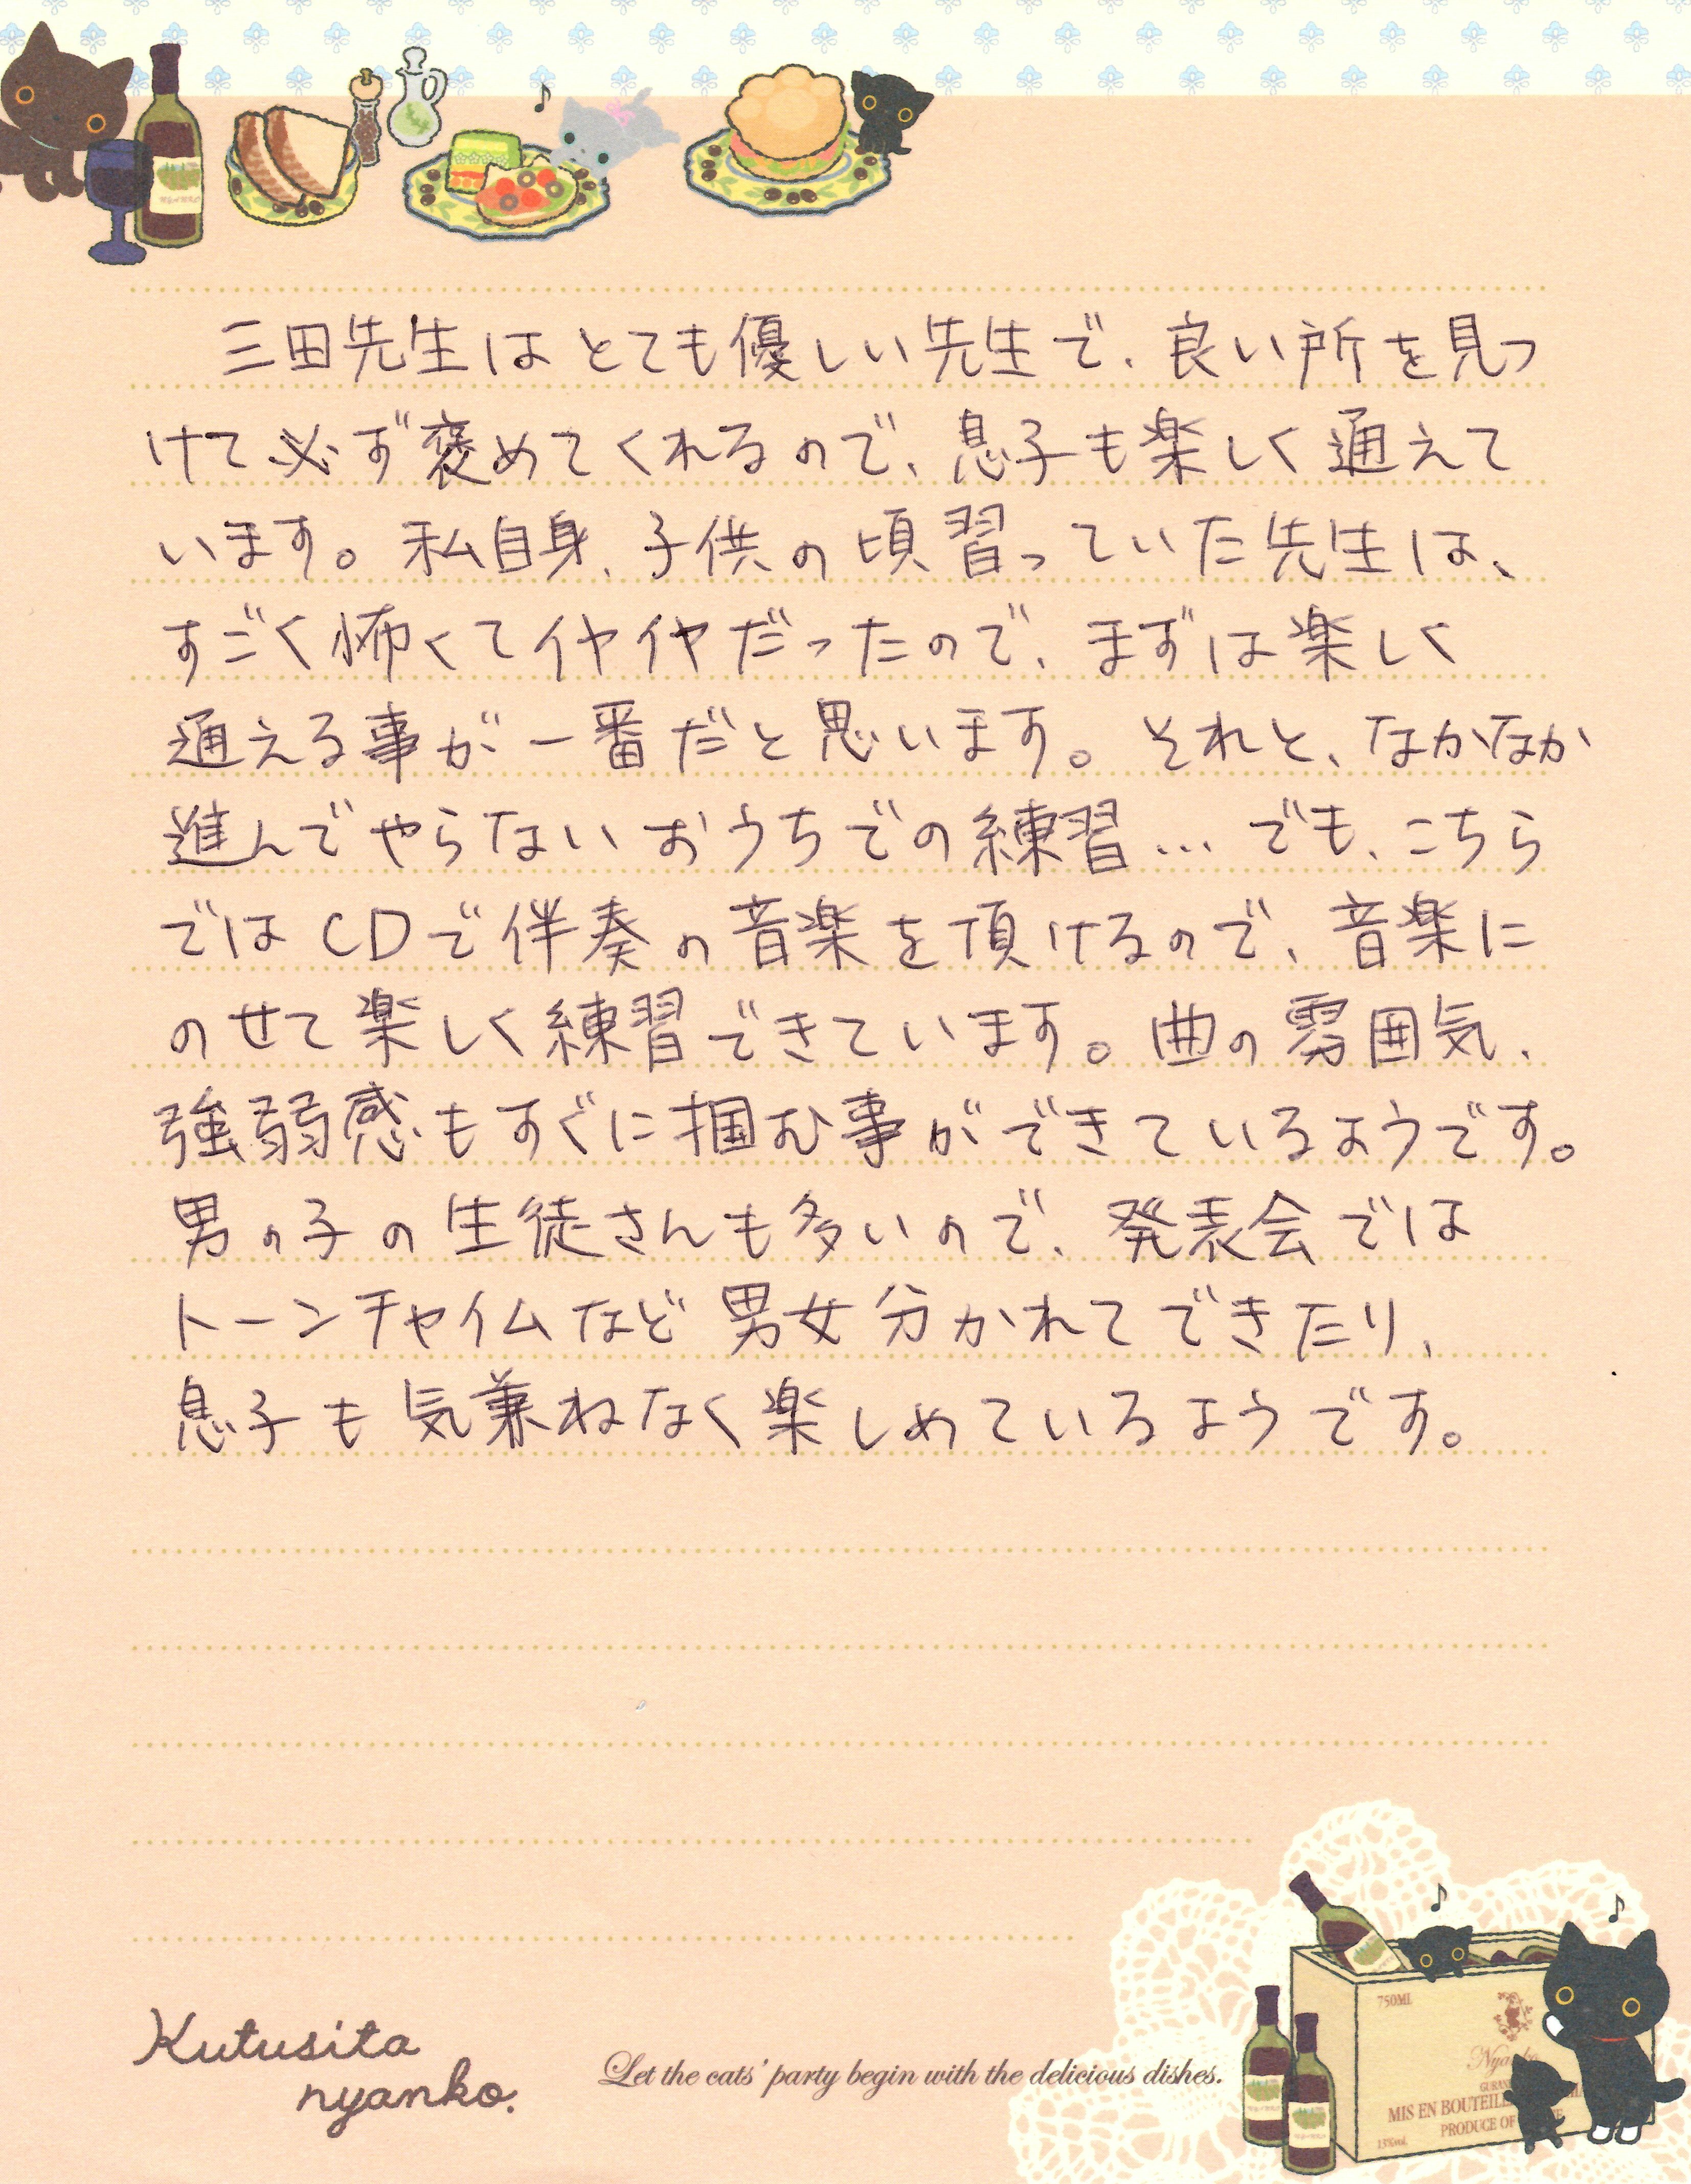 三田先生はとても優しい先生で、良い所を見つ
けて必ず褒めてくれるので、息子も楽しく通えて
います。私自身、子供の頃習っていた先生は、
すごく怖くてイヤイヤだったので、まずは楽しく
通える事が一番だと思います。それと、なかなか
進んでやらないおうちでの練習…でも、こちら
ではCDで伴奏の音楽を頂けるので、音楽に
のせて楽しく練習できています。曲の雰囲気、
強弱感もすぐに掴む事ができているようです。
男の子の生徒さんも多いので、発表会では
トーンチャイムなど男女分かれてできたり、
息子も気兼ねなく楽しめているようです。
750ML
Nyanko
MIS EN BOUTEILLE
PRODUCE OF
13%vol.
Kutusita
nyanko.
Let the cats' party begin with the delicious dishes.